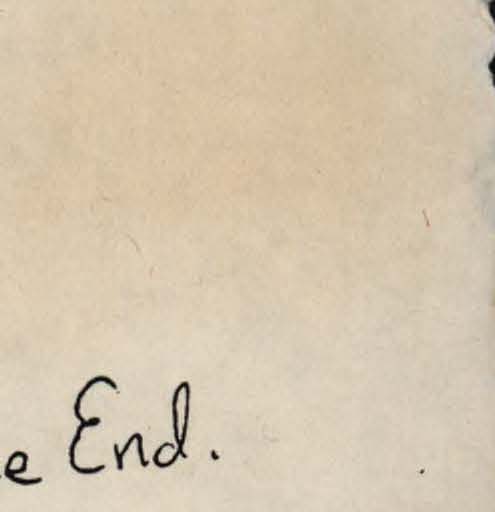 e End.